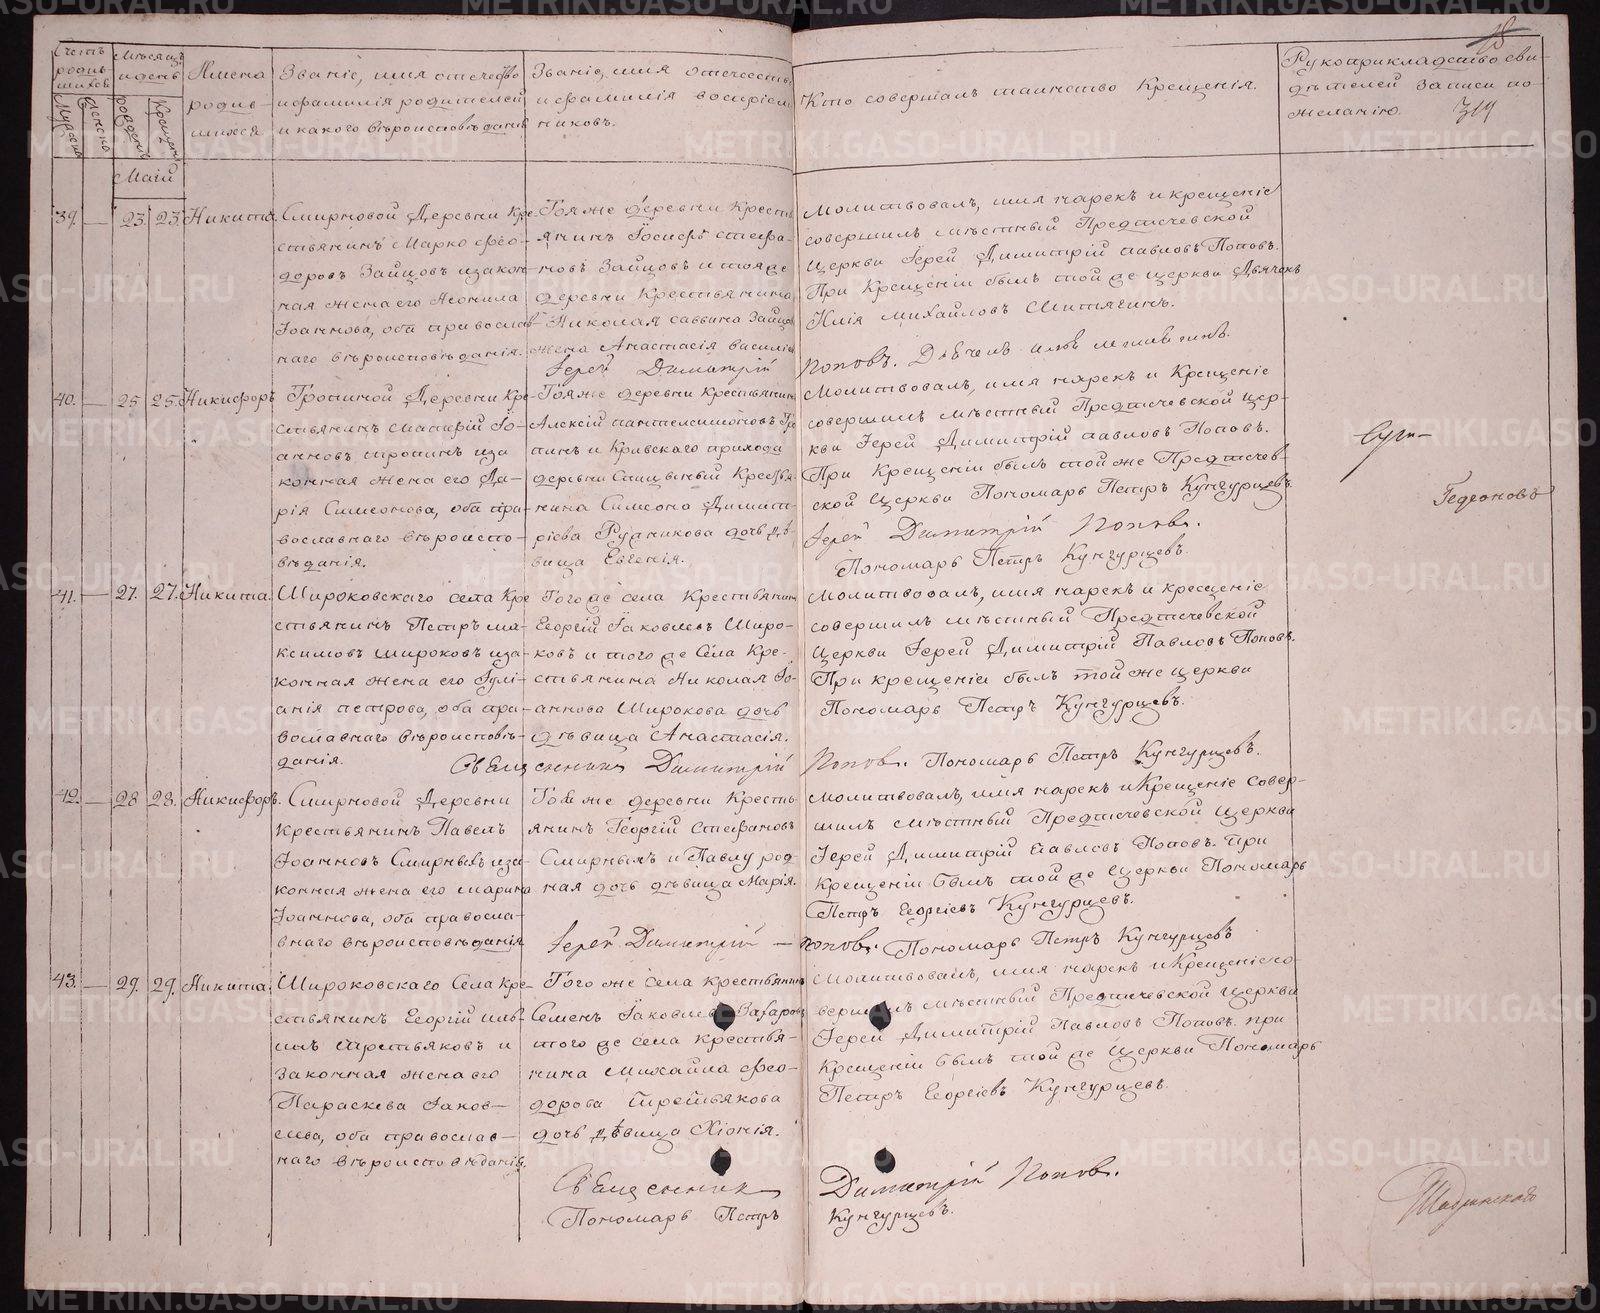 Счетъ родившихся
Мѣсяцъ и день
Имена родившихся
Званіе, имя отечество и фамилія родителей и какого вѣроисповѣданія
Званіе, имя отечество и фамилія воспріемниковъ.
Кто совершалъ таинство Крещенія.
Рукоприкладство свидѣтелей записи по желанію.
Мужска Женска рожденія Крещенія
Маій
39. — 23 23 Никита.
Смирновой Деревни Кре-
стьянинъ Марко Ѳео-
доровъ Зайцовъ изакон
ная жена его Неонила
Іоаннова, оба православ
наго вѣроисповѣданія.
Тояже деревни Кресть
янинъ Іосифъ Стефа-
новъ Зайцовъ и тояже
деревни Крестьянина
Николая Саввина Зайцов
жена Анастасія Василі
Іерей Димитрій
Молитвовалъ, имя нарекъ и крещеніе
совершилъ мѣстный Предтечевской
Церкви Іерей Димитрій Павловъ Поповъ.
При Крещеніи былъ той же церкви Дьячекъ
Илія Михайловъ
Поповъ.
40. — 25 25. Никифоръ
Тропиной Деревни Кре-
стьянинъ Іо-
анновъ Тропинъ иза
конная жена его Да-
рія Симеонова, оба пра-
вославнаго вѣроиспо-
вѣданія.
Тояже деревни Крестьянинъ
Алексій Пантелеимоновъ Тро
пинъ и Кривскаго прихода
деревни Спицыной Крестья
нина Симеона Димит-
ріева Рудникова дочь дѣ
вица Евгенія.
Молитвовалъ, имя нарекъ и Крещеніе
совершилъ мѣстный Предтечевской Цер-
кви Іерей Димитрій Павловъ Поповъ.
При Крещеніи былъ той же Предтечев-
ской Церкви Пономарь Петръ Кунгурцевъ.
Іерей Димитрій Поповъ.
Пономарь Петръ Кунгурцевъ.
Гедеоновъ
41. — 27. 27. Никита.
Широковскаго села Кре
стьянинъ Петръ Ма-
ксимовъ Широковъ иза-
конная жена его Іулі-
анія Петрова, оба пра-
вославнаго вѣроисповѣ-
данія.
Тогоже села Крестьянинъ
Георгій Іаковлевъ Широ-
ковъ и того же Села Кре-
стьянина Николая Іо-
аннова Широкова дочь
дѣвица Анастасія.
Священникъ Димитрій
Молитвовалъ, имя нарекъ и крещеніе
совершилъ мѣстный Предтечевской
Церкви Іерей Димитрій Павловъ Поповъ.
При крещеніи былъ той же церкви
Пономарь Петръ Кунгурцевъ.
Поповъ. Пономарь Петръ Кунгурцевъ.
42. — 28 28. Никифоръ.
Смирновой Деревни
Крестьянинъ Павелъ
Іоанновъ Смирныхъ иза-
конная жена его Марина
Іоаннова, оба правосла-
внаго вѣроисповѣданія
Тояже деревни Кресть-
янинъ Георгій Стефановъ
Смирныхъ и Павлу род-
ная дочь дѣвица Марія.
Іерей Димитрій —
Молитвовалъ, имя нарекъ и Крещеніе совер-
шилъ мѣстный Предтечевской Церкви
Іерей Димитрій Павловъ Поповъ. При
крещеніи былъ той же Церкви Пономарь
Петръ Георгіевъ Кунгурцевъ.
Поповъ. Пономарь Петръ Кунгурцевъ
43. — 29. 29. Никита.
Широковскаго Села Кре-
стьянинъ Георгій
Третьяковъ и
законная жена его
Параскева Іаков-
лева, оба православ-
наго вѣроисповѣданія.
Того же села крестьянинъ
Семенъ Іаковлевъ Захаровъ
того же села крестья-
нина Михаила Ѳео-
дорова Третьякова
дочь дѣвица Хіонія.
Священникъ
Пономарь Петръ
Молитвовалъ, имя нарекъ и Крещеніе со-
вершилъ мѣстный Предтечевской Церкви
Іерей Димитрій Павловъ Поповъ. При
крещеніи былъ той же Церкви Пономарь
Петръ Георгіевъ Кунгурцевъ.
Димитрій Поповъ.
Кунгурцевъ.
METRIKI.GASO-URAL.RU